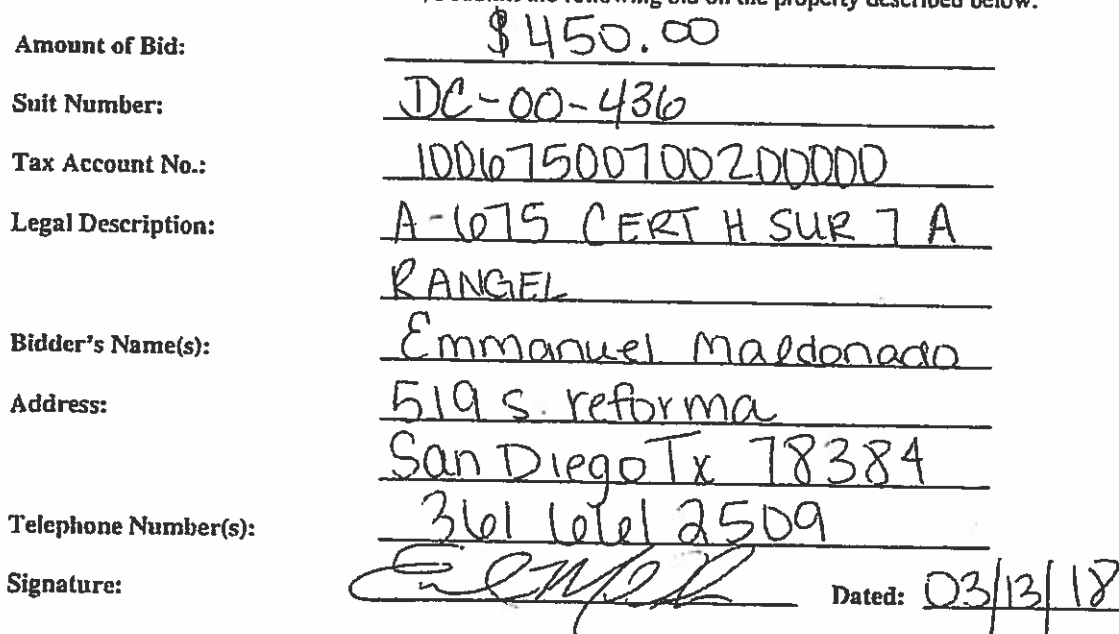 the following bid on the property described below.
Amount of Bid: $450.00
Suit Number: DC-00-436
Tax Account No.: 10067500700200000
Legal Description: A-675 CERT H SUR 7 A
RANGEL
Bidder's Name(s): Emmanuel Maldonado
Address: 519 S. reforma
San Diego Tx 78384
Telephone Number(s): 361 661 2509
Signature: Dated: 03/13/18